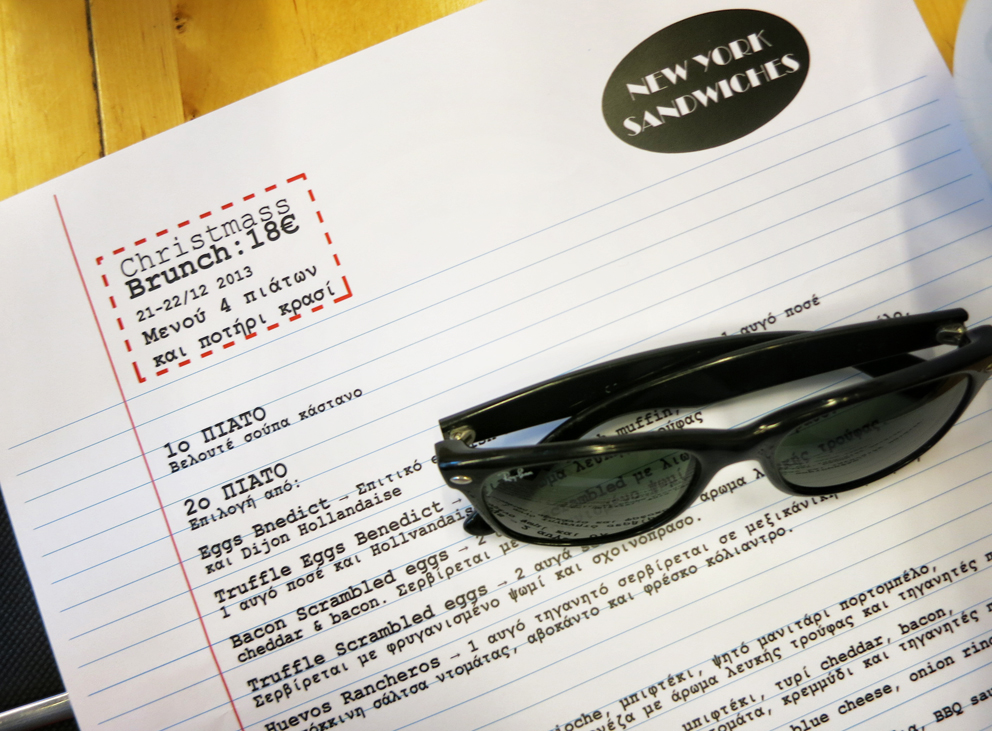 NEW YORK
SANDWICHES
Christmass
Brunch:18€
21-22/12 2013
Μενού 4 πιάτων
και ποτήρι κρασί
1ο ΠΙΑΤΟ
Βελουτέ σούπα κάστανο
2ο ΠΙΑΤΟ
Επιλογή από:
αυγό ποσέ
Eggs Bnedict → Επιτικό muffin,
και Dijon Hollandaise
Truffle Eggs Benedict →
1 αυγό ποσέ και Hollvandais
Bacon Scrambled eggs → 2
cheddar & bacon. Σερβίρεται με
Truffle Scrambled eggs → 2 αυγά άρωμα
Σερβίρεται με φρυγανισμένο ψωμί και σχοινόπρασο.
Huevos Rancheros → 1 αυγό τηγανητό σερβίρεται σε μεξικάνικη
κόκκινη σάλτσα ντομάτας, αβοκάντο και φρέσκο κόλιαντρο.
μπιφτέκι, ψητό μανιτάρι πορτομπέλο,
με άρωμα λευκής τρούφας και τηγανητές
μπιφτέκι, τυρί cheddar, bacon,
κρεμμύδι και τηγανητές
blue cheese, onion
BBQ